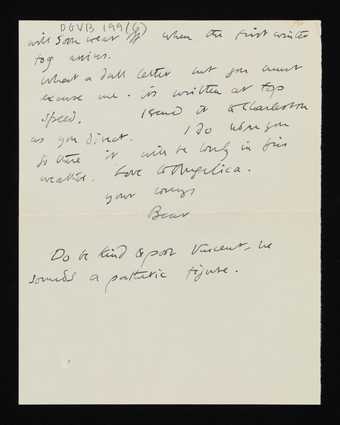 DGVB 199(6)
will soon wear off when the first winter
fog arrives.
What a dull letter but you must
excuse me. its written at top
speed. I send it to Charleston
as you direct. I do hope you
go there it will be lovely in this
weather. Love to Angelica.
your loving
Bear
Do be kind to poor Vincent, he
sounds a pathetic figure.